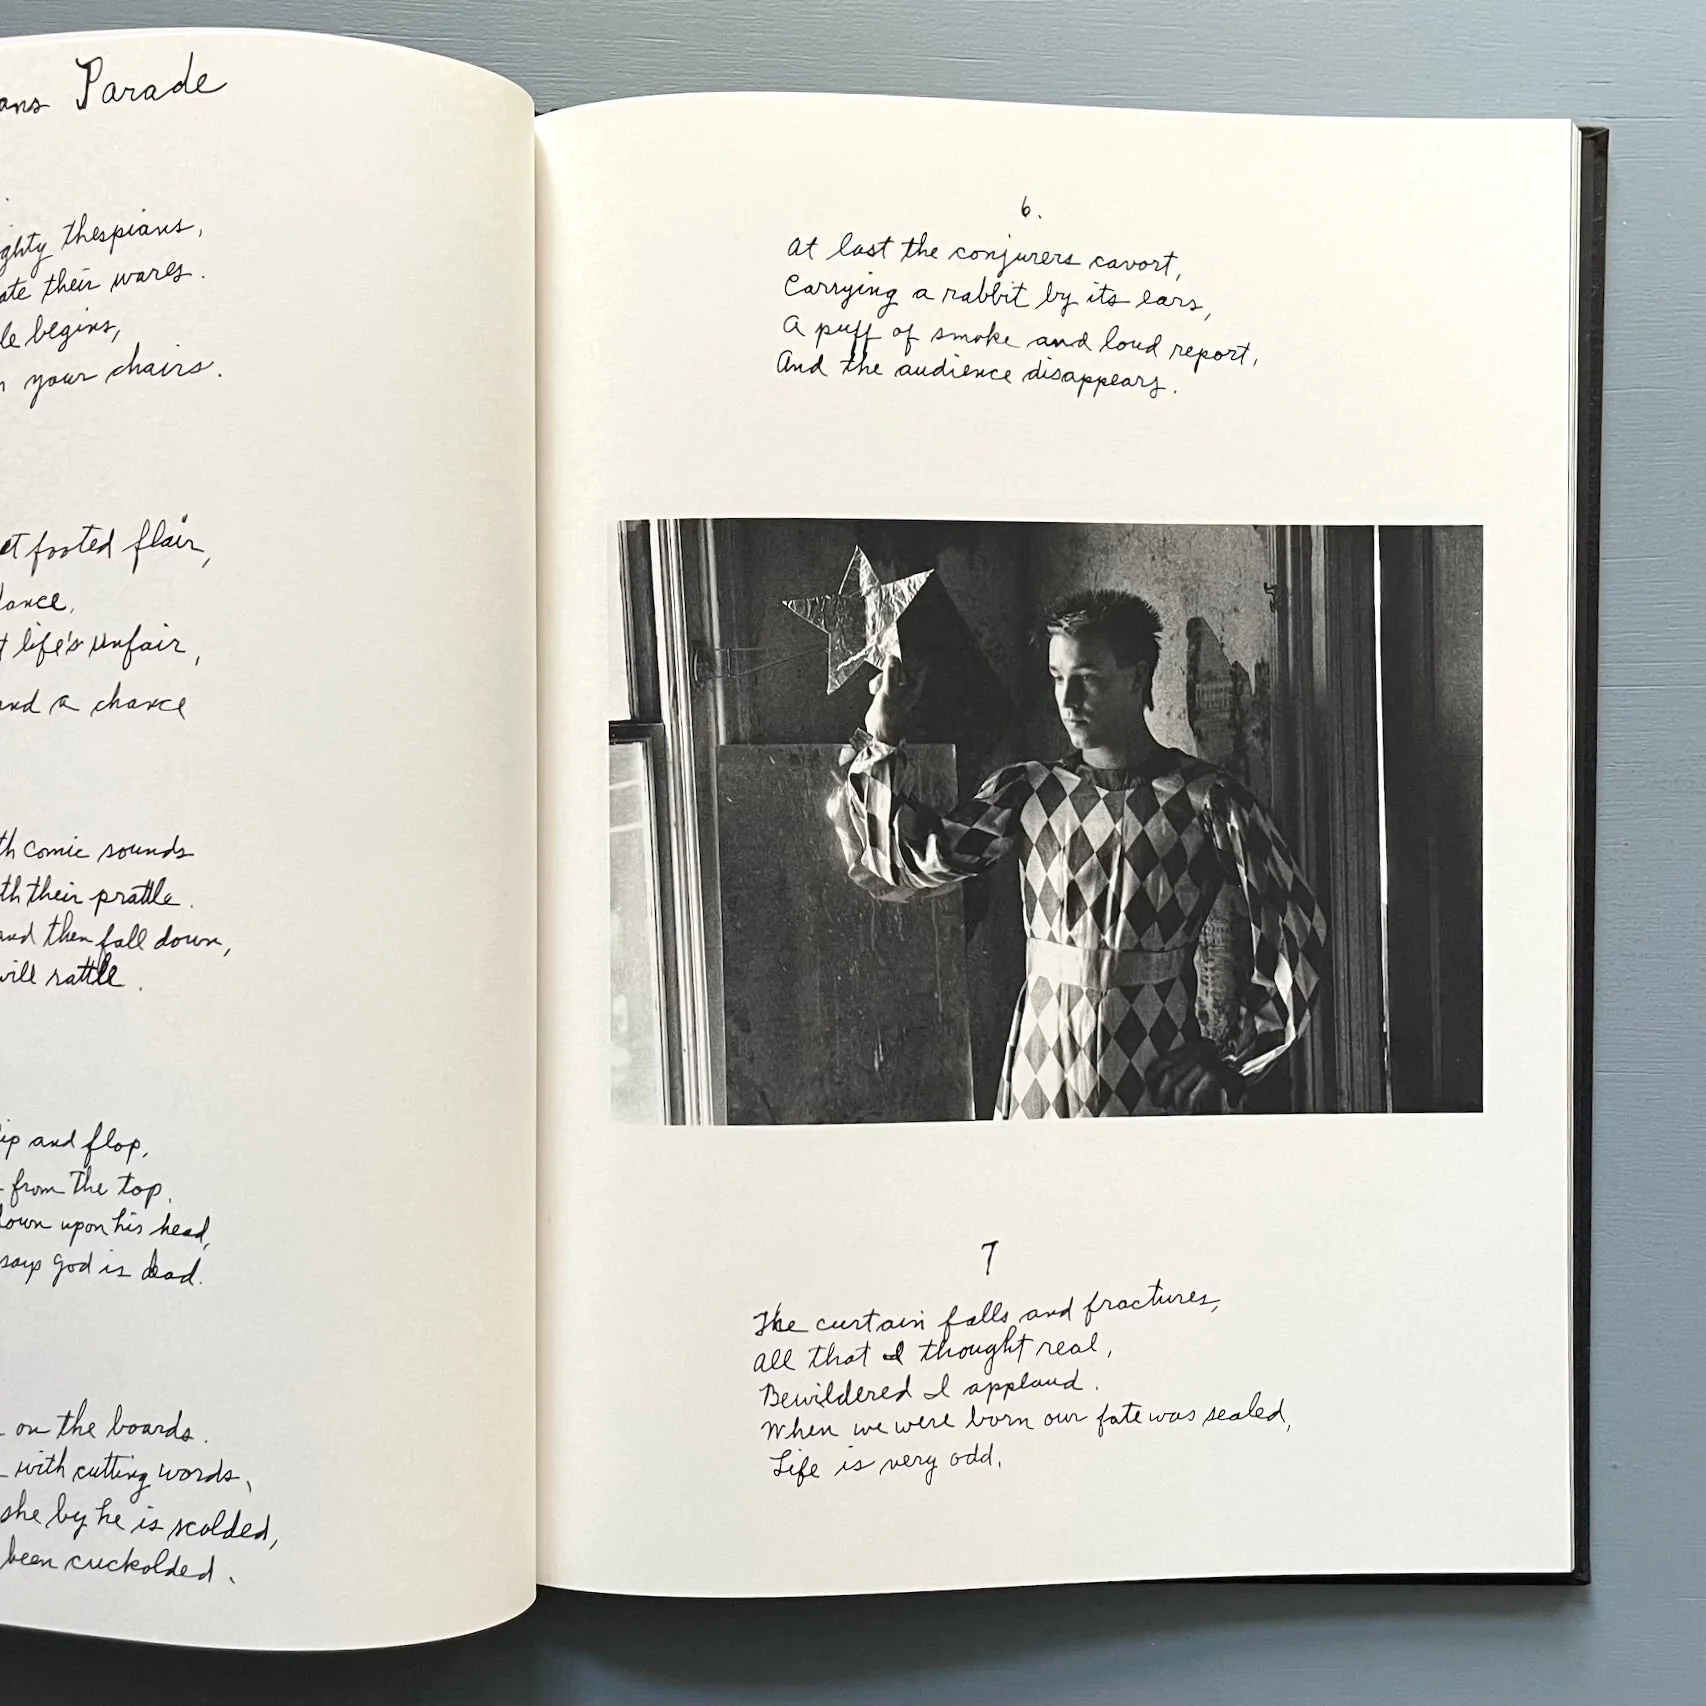 Parade
thespians,
their wares.
begins,
your chairs.
footed flair,
life's unfair,
and a chance
comic sounds
their prattle.
and then fall down,
will rattle.
and flop,
from the top.
down upon his head,
says god is dead.
on the boards.
with cutting words,
she by he is scolded,
been cuckolded.
6.
At last the conjurers cavort,
Carrying a rabbit by its ears,
A puff of smoke and loud report,
And the audience disappears.
7
The curtain falls and fractures,
All that I thought real,
Bewildered I applaud.
When we were born our fate was sealed,
Life is very odd.